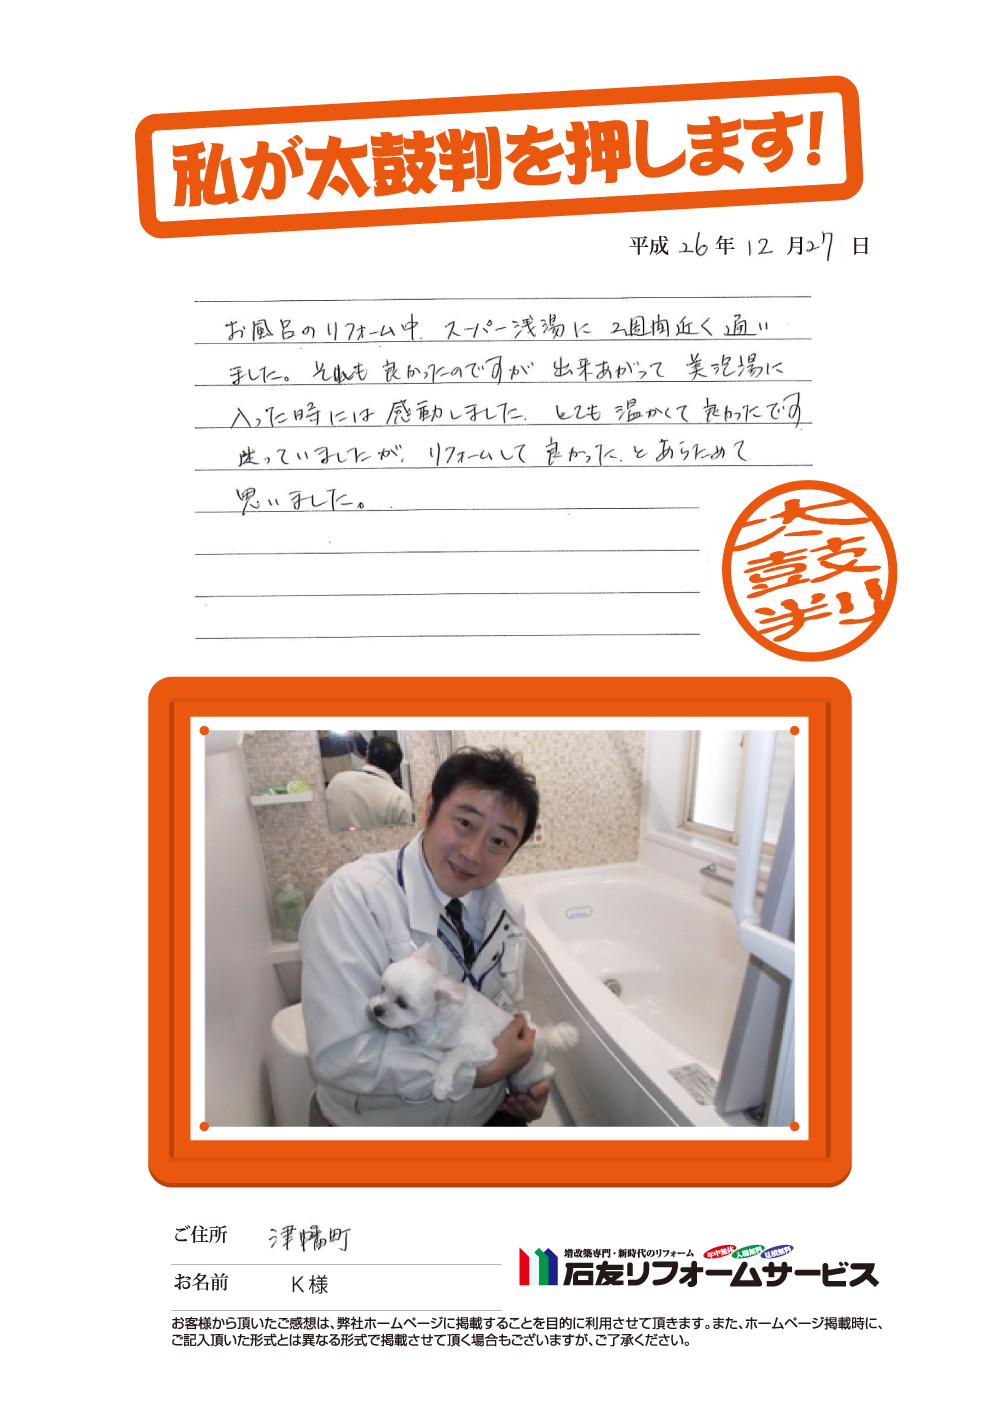 私が太鼓判を押します!
平成 26 年 12 月 27 日
お風呂のリフォーム中、スーパー浅湯に 2週間近く通い
ました。それも良かったのですが 出来あがって 美泡湯に
入った時には 感動しました。とても 温かくて 良かったです
迷っていましたが、リフォームして 良かった、とあらためて
思いました。
太鼓判
ご住所 津幡町
お名前 K様
増改築専門・新時代のリフォーム
年中無休 入場無料 見積無料
石友リフォームサービス
お客様から頂いたご感想は、弊社ホームページに掲載することを目的に利用させて頂きます。また、ホームページ掲載時に、
ご記入頂いた形式とは異なる形式で掲載させて頂く場合もございますが、ご了承ください。